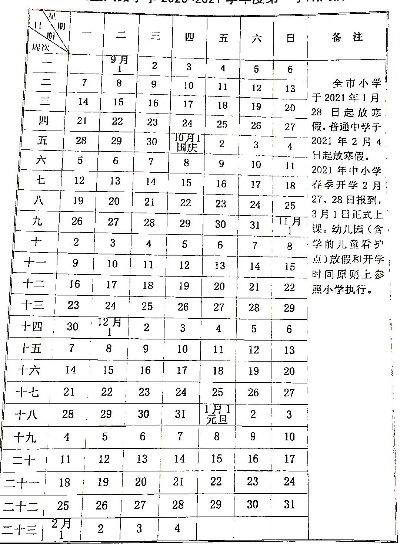 星期
日期
周次
一 二 三 四 五 六 日 备注
一 9月1 2 3 4 5 6
二 7 8 9 10 11 12 13
三 14 15 16 17 18 19 20
四 21 22 23 24 25 26 27
五 28 29 30 10月1国庆 2 3 4
六 5 6 7 8 9 10 11
七 12 13 14 15 16 17 18
八 19 20 21 22 23 24 25
九 26 27 28 29 30 31 11月1
十 2 3 4 5 6 7 8
十一 9 10 11 12 13 14 15
十二 16 17 18 19 20 21 22
十三 23 24 25 26 27 28 29
十四 30 12月1 2 3 4 5 6
十五 7 8 9 10 11 12 13
十六 14 15 16 17 18 19 20
十七 21 22 23 24 25 26 27
十八 28 29 30 31 1月1元旦 2 3
十九 4 5 6 7 8 9 10
二十 11 12 13 14 15 16 17
二十一 18 19 20 21 22 23 24
二十二 25 26 27 28 29 30 31
二十三 2月1 2 3 4
全市小学
于2021年1月
28日起放寒
假。普通中学于
2021年2月4
日起放寒假。
2021年中小学
春季开学2月
27、28日报到,
3月1日正式上
课。幼儿园(含
学前儿童看护
点)放假和开学
时间原则上参
照小学执行。